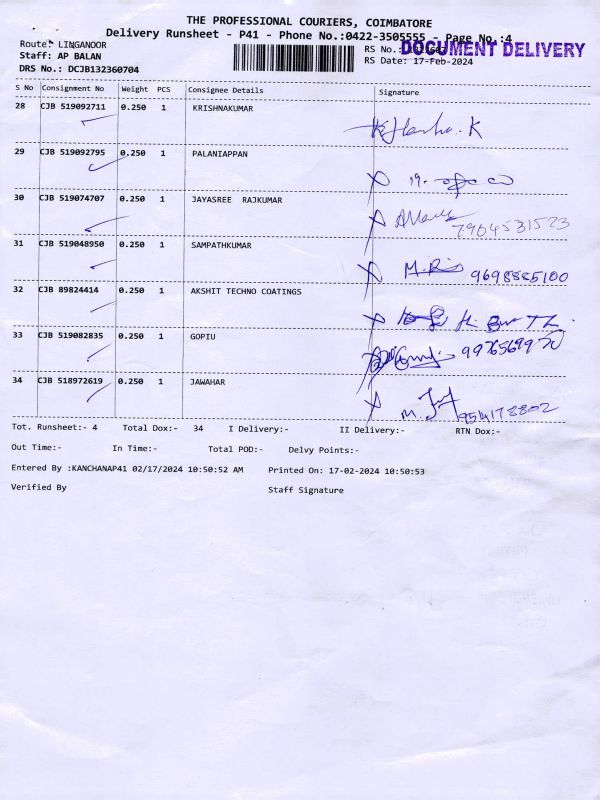 THE PROFESSIONAL COURIERS, COIMBATORE
Delivery Runsheet - P41 - Phone No.:0422-3505555 - Page No.:4
Route: LINGANOOR
RS No.:
DOCUMENT DELIVERY
Staff: AP BALAN
RS Date: 17-Feb-2024
DRS No.: DCJB132360704
S No Consignment No Weight PCS Consignee Details Signature
28 CJB 519092711 0.250 1 KRISHNAKUMAR
29 CJB 519092795 0.250 1 PALANIAPPAN
30 CJB 519074707 0.250 1 JAYASREE RAJKUMAR
7904531523
31 CJB 519048950 0.250 1 SAMPATHKUMAR
9698885100
32 CJB 89824414 0.250 1 AKSHIT TECHNO COATINGS
33 CJB 519082835 0.250 1 GOPIU
9976569970
34 CJB 518972619 0.250 1 JAWAHAR
Tot. Runsheet:- 4 Total Dox:- 34 I Delivery:- II Delivery:- RTN Dox:-
Out Time:- In Time:- Total POD:- Delvy Points:-
Entered By :KANCHANAP41 02/17/2024 10:50:52 AM Printed On: 17-02-2024 10:50:53
Verified By Staff Signature